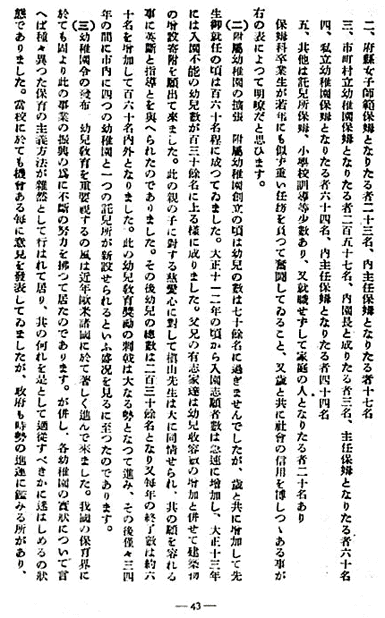 二、府縣女子師範保姆となりたる者二十三名、内主任保姆となりたる者十七名
三、市町村立幼稚園保姆となりたる者二百五十七名、内園長と成りたる者三名、主任保姆となりたる者六十名
四、私立幼稚園保姆となりたる者六十四名、内主任保姆となりたる者四十四名
五、其他は託兒所保姆、小學校訓導等少數あり、又就職せずして家庭の人となりたる者二十名あり
保姆科卒業生が若年にも似ず重い任務を負つて奮鬪してゐること、又歳と共に社會の信用を博しつゝある事が
右の表によつて明瞭だと思ひます。
(二)附屬幼稚園の擴張 附屬幼稚園創立の頃は幼兒の數は七十餘名に過ぎませんでしたが、歳と共に增加して先
生御就任の頃は百六十名程に成つてゐました。大正十一二年の頃から入園志願者數は急速に增加し、大正十三年
には入園不能の幼兒數が百三十餘名に上る樣に成りました。父兄の有志家達は幼兒收容數の增加と併せて建築物
の增設寄附を願出て來ました。此の親の子に對する慈愛心に對して楢山先生は大に同情せられ、其の願を容れる
事に英斷と指導とを與へられたのでありました。その後幼兒の總數は二百三十餘名となり又每年の終了數は約六
十名を增加して百六十名内外となりました。此の幼兒敎育奬勵の刺戟は大なる勢となつて進み、その後僅々三四
年の間に市内に四つの幼稚園と一つの託兒所が新設せられるといふ盛況を見るに至つたのであります。
(三)幼稚園令の發布 幼兒敎育を重要視するの風は近年歐米諸國に於て著しく進んで來ました。我國の保育界に
於ても固より此の事業の振興の爲に不斷の努力を拂つて居たのであります。が併し、各幼稚園の實狀について言
へば種々異つた保育の主義方法が雜然として行はれて居り、其の何れを是として適從すべきかに迷はしめるの狀
態でありました。當校に於ても機會ある每に意見を發表してゐましたが、政府も時勢の進運に鑑みる所があり、
— 43 —